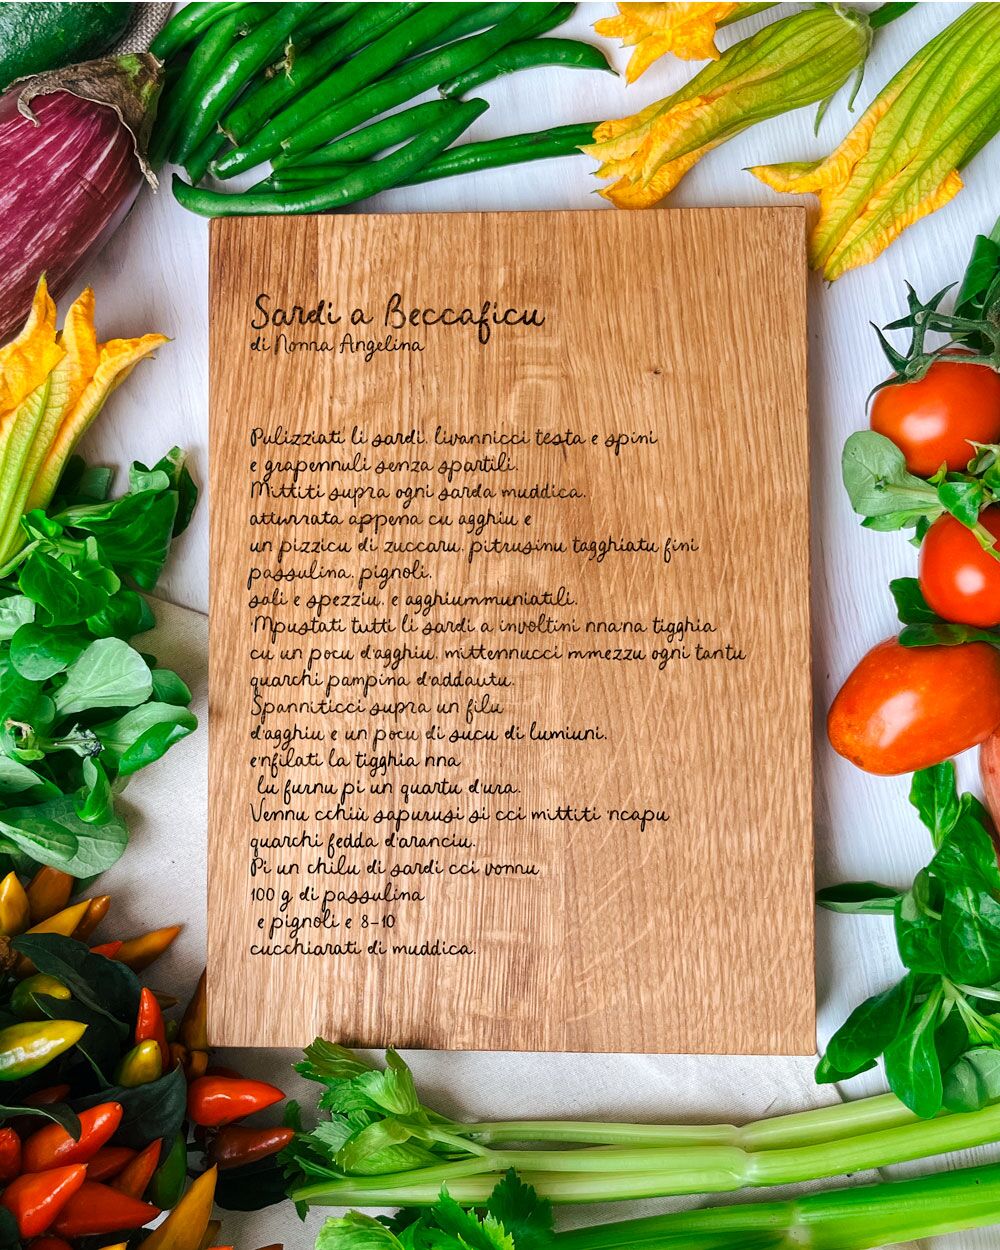 Sardi a Beccaficu
di Nonna Angelina
Pulizziati li sardi, livannicci testa e spini
e grapennuli senza spartili.
Mittiti supra ogni sarda muddica,
atturrata appena cu agghiu e
un pizzicu di zuccaru, pitrusinu tagghiatu fini
passulina, pignoli,
sali e spezziu, e agghiummuniatili.
'Mpustati tutti li sardi a involtini nna'na tigghia
cu un pocu d'agghiu, mittennucci mmezzu ogni tantu
quarchi pampina d'addautu.
Spanniticci supra un filu
d'agghiu e un pocu di sucu di lumiuni,
e'nfilati la tigghia nna
lu furnu pi un quartu d'ura.
Vennu cchiù sapurusi si cci mittiti 'ncapu
quarchi fedda d'aranciu.
Pi un chilu di sardi cci vonnu
100 g di passulina
e pignoli e 8-10
cucchiarati di muddica.